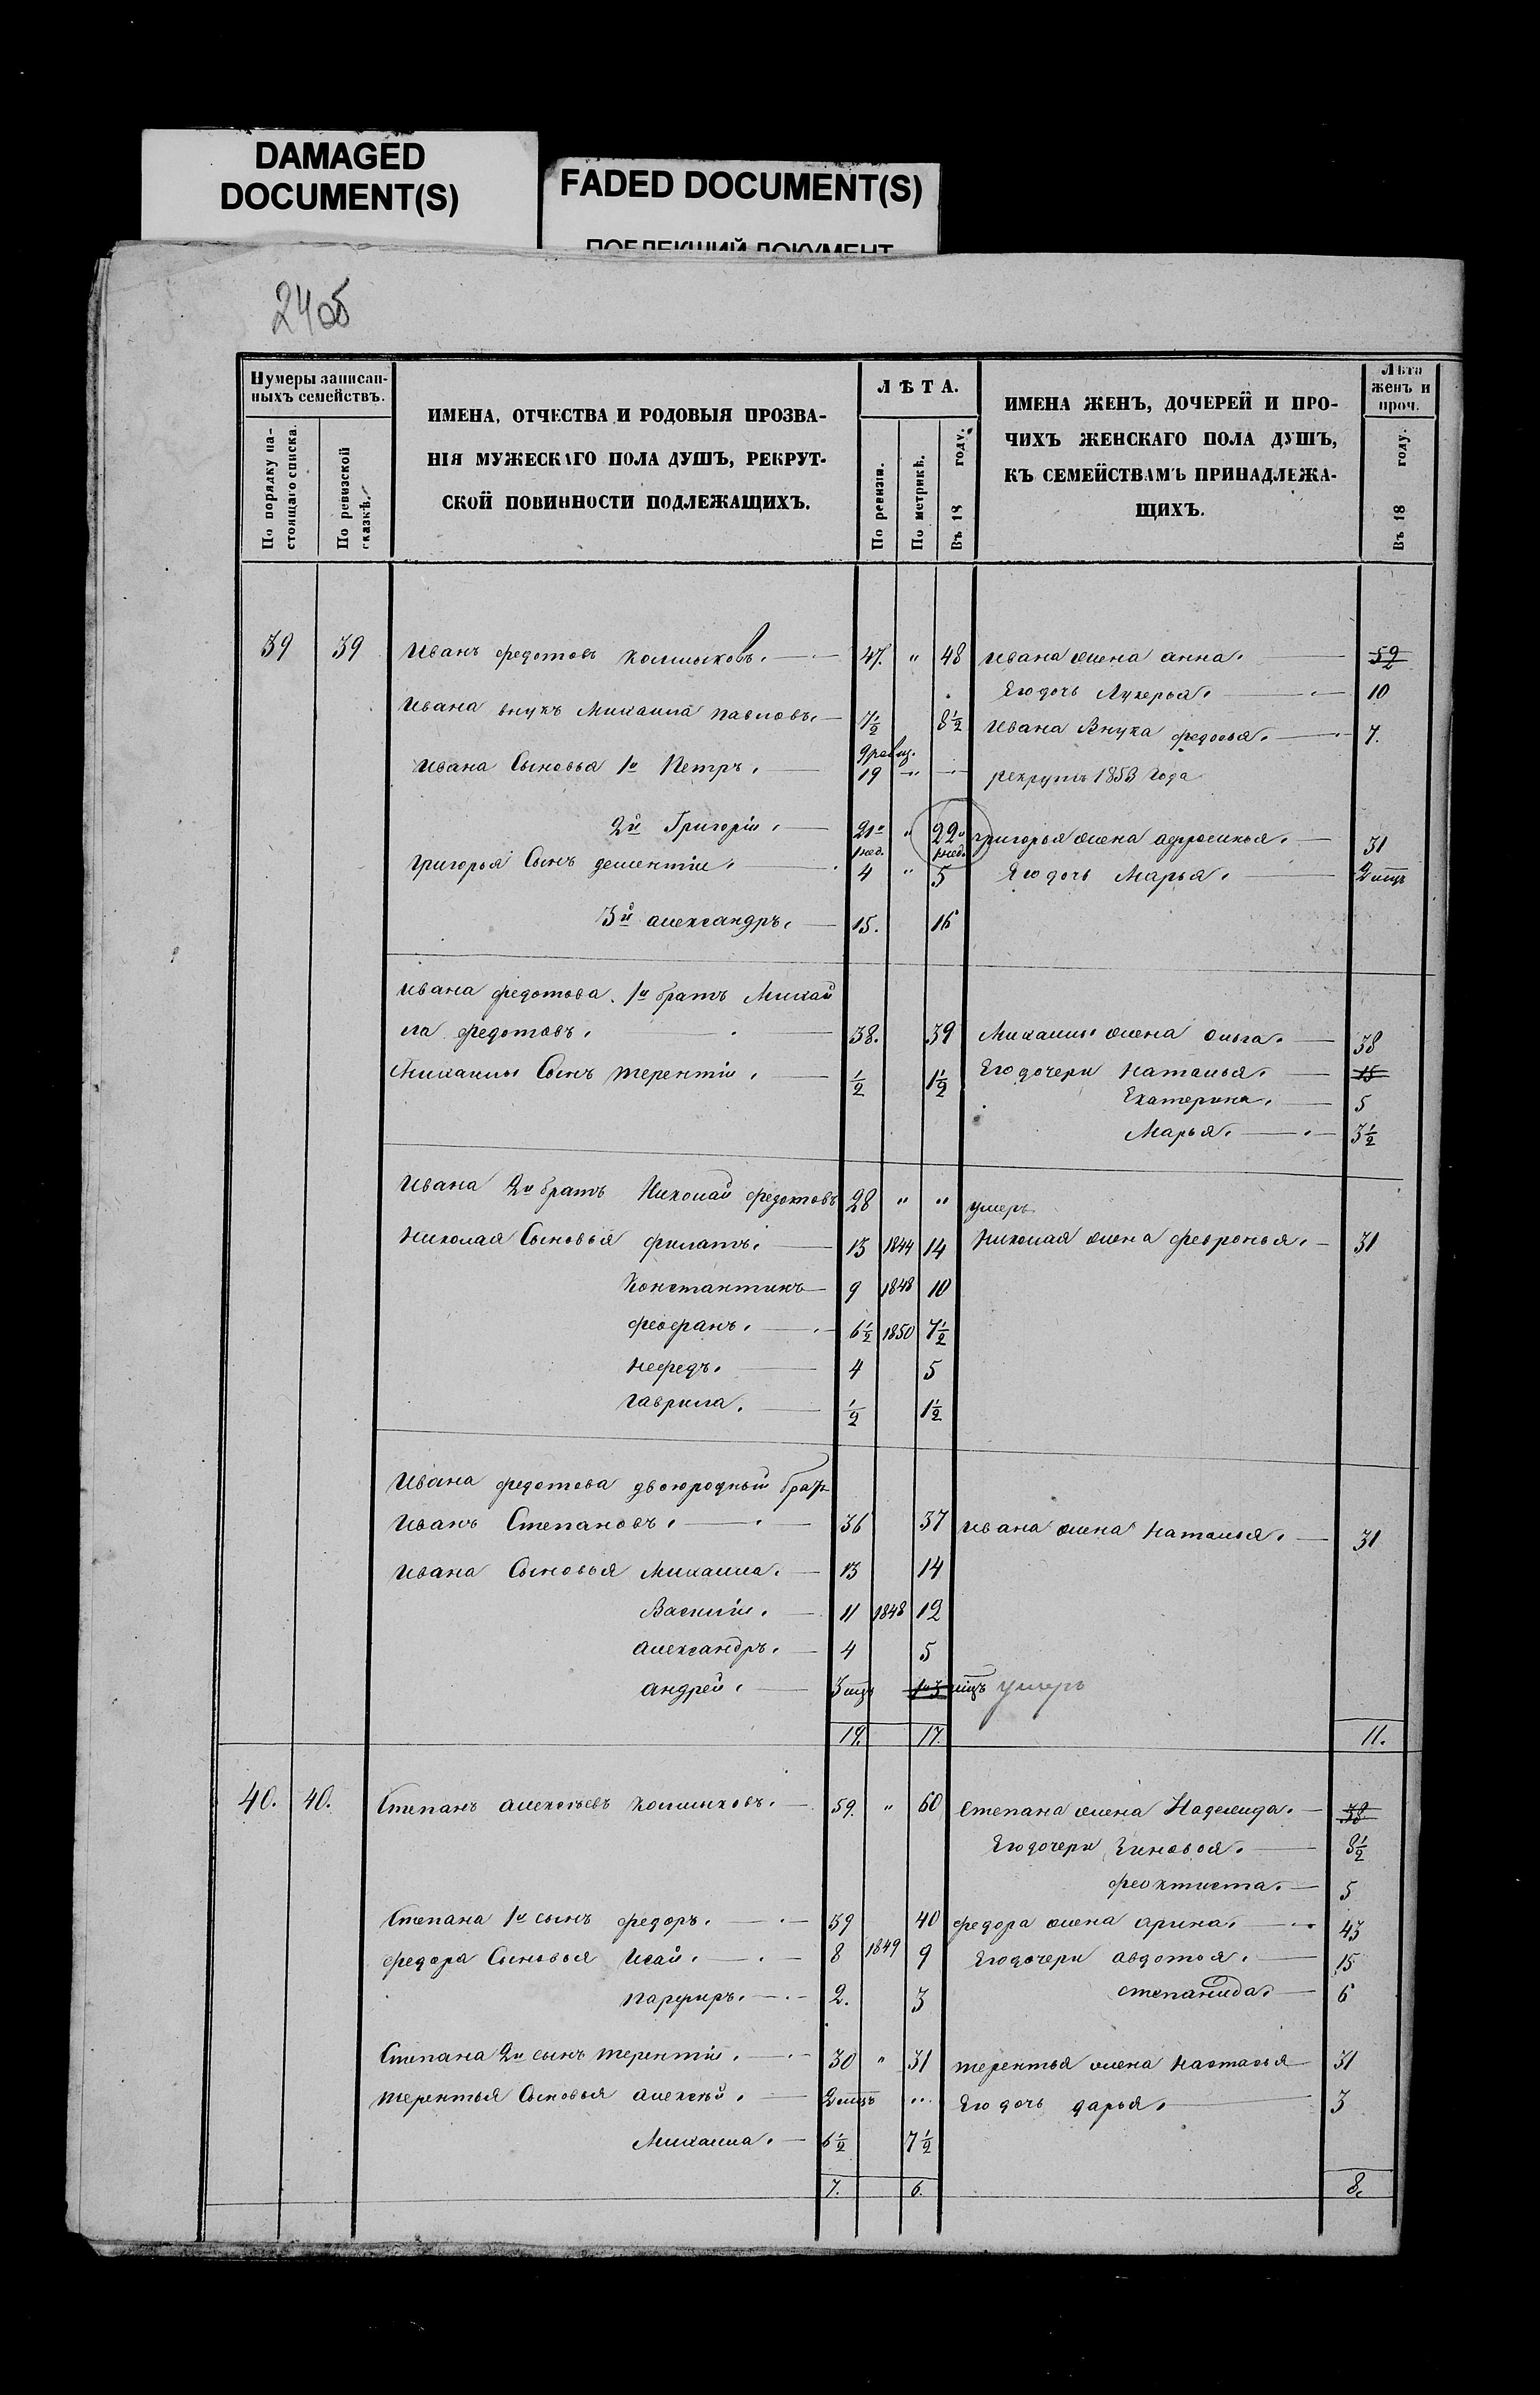 DAMAGED
DOCUMENT(S)
FADED DOCUMENT(S)
ПОБЛЕКШИЙ ДОКУМЕНТ
24об
Нумеры записан-
ныхъ семействъ.
По порядку на-
стоящаго списка.
По ревизской
сказкѣ.
ИМЕНА, ОТЧЕСТВА И РОДОВЫЯ ПРОЗВА-
НІЯ МУЖЕСКАГО ПОЛА ДУШЪ, РЕКРУТ-
СКОЙ ПОВИННОСТИ ПОДЛЕЖАЩИХЪ.
ЛѢТА.
По ревизіи.
По метрикѣ.
Въ 18 году.
ИМЕНА ЖЕНЪ, ДОЧЕРЕЙ И ПРО-
ЧИХЪ ЖЕНСКАГО ПОЛА ДУШЪ,
КЪ СЕМЕЙСТВАМЪ ПРИНАДЛЕЖА-
ЩИХЪ.
Лѣта
женъ и
проч.
Въ 18 году.
39 39 Иванъ Федотовъ Колмыковъ. 47. " 48 Ивана жена анна. 59/2
Его дочь Лукерья. 10
Ивана внукъ Михаила Павловъ. 7½ 8½ Ивана Внука Федосья. 7.
Ивана Сыновья 1й Петръ. 19 " " рекрутъ 1853 Года
2й Григорій. 21 " 22 Григорья жена афросинья. 31
1нед. 1нед.
Григорья Сынъ дементій. 4 " 5 Его дочь Марья. 2 мцъ
3й александръ. 15. 16
Ивана Федотова 1й братъ Михай
ла Федотовъ. 38. 39 Михаилы жена Ольга. 38
Михаилы Сынъ терентій. ½ 1½ Его дочери Наталья. 15
Екатерина. 5
Марья. 3½
Ивана 2й братъ Николай Федотовъ 28 " " умеръ
Николая Сыновья Филатъ. 13 1844 14 Николая жена Февронья. 31
Константинъ 9 1848 10
Феофанъ. 6½ 1850 7½
Нефедъ. 4 5
Гаврила. ½ 1½
Ивана Федотова двоюродный братъ
Иванъ Степановъ. 36 37 Ивана жена Наталья. 31
Ивана Сыновья Михаила. 13 14
Василій. 11 1848 12
Александръ. 4 5
Андрей. 3 мцъ 1 и 3 мцъ умеръ
19. 17. 11.
40. 40. Степанъ Алексѣевъ Колмыковъ. 59. " 60 Степана жена Надежда. 38
Его дочери Зиновья. 8½
Феоктиста. 5
Степана 1й сынъ Федоръ. 39 40 Федора жена Арина. 43
Федора Сыновья Исай. 8 1849 9 Его дочери Авдотья. 15
Парфиръ. 2. 3 Степанида. 6
Степана 2й сынъ терентій. 30 " 31 терентья жена Настасья 31
терентья Сыновья Алексѣй. 2 мцъ " Его дочь дарья. 3
Михаила. 6½ 7½
7. 6. 8.